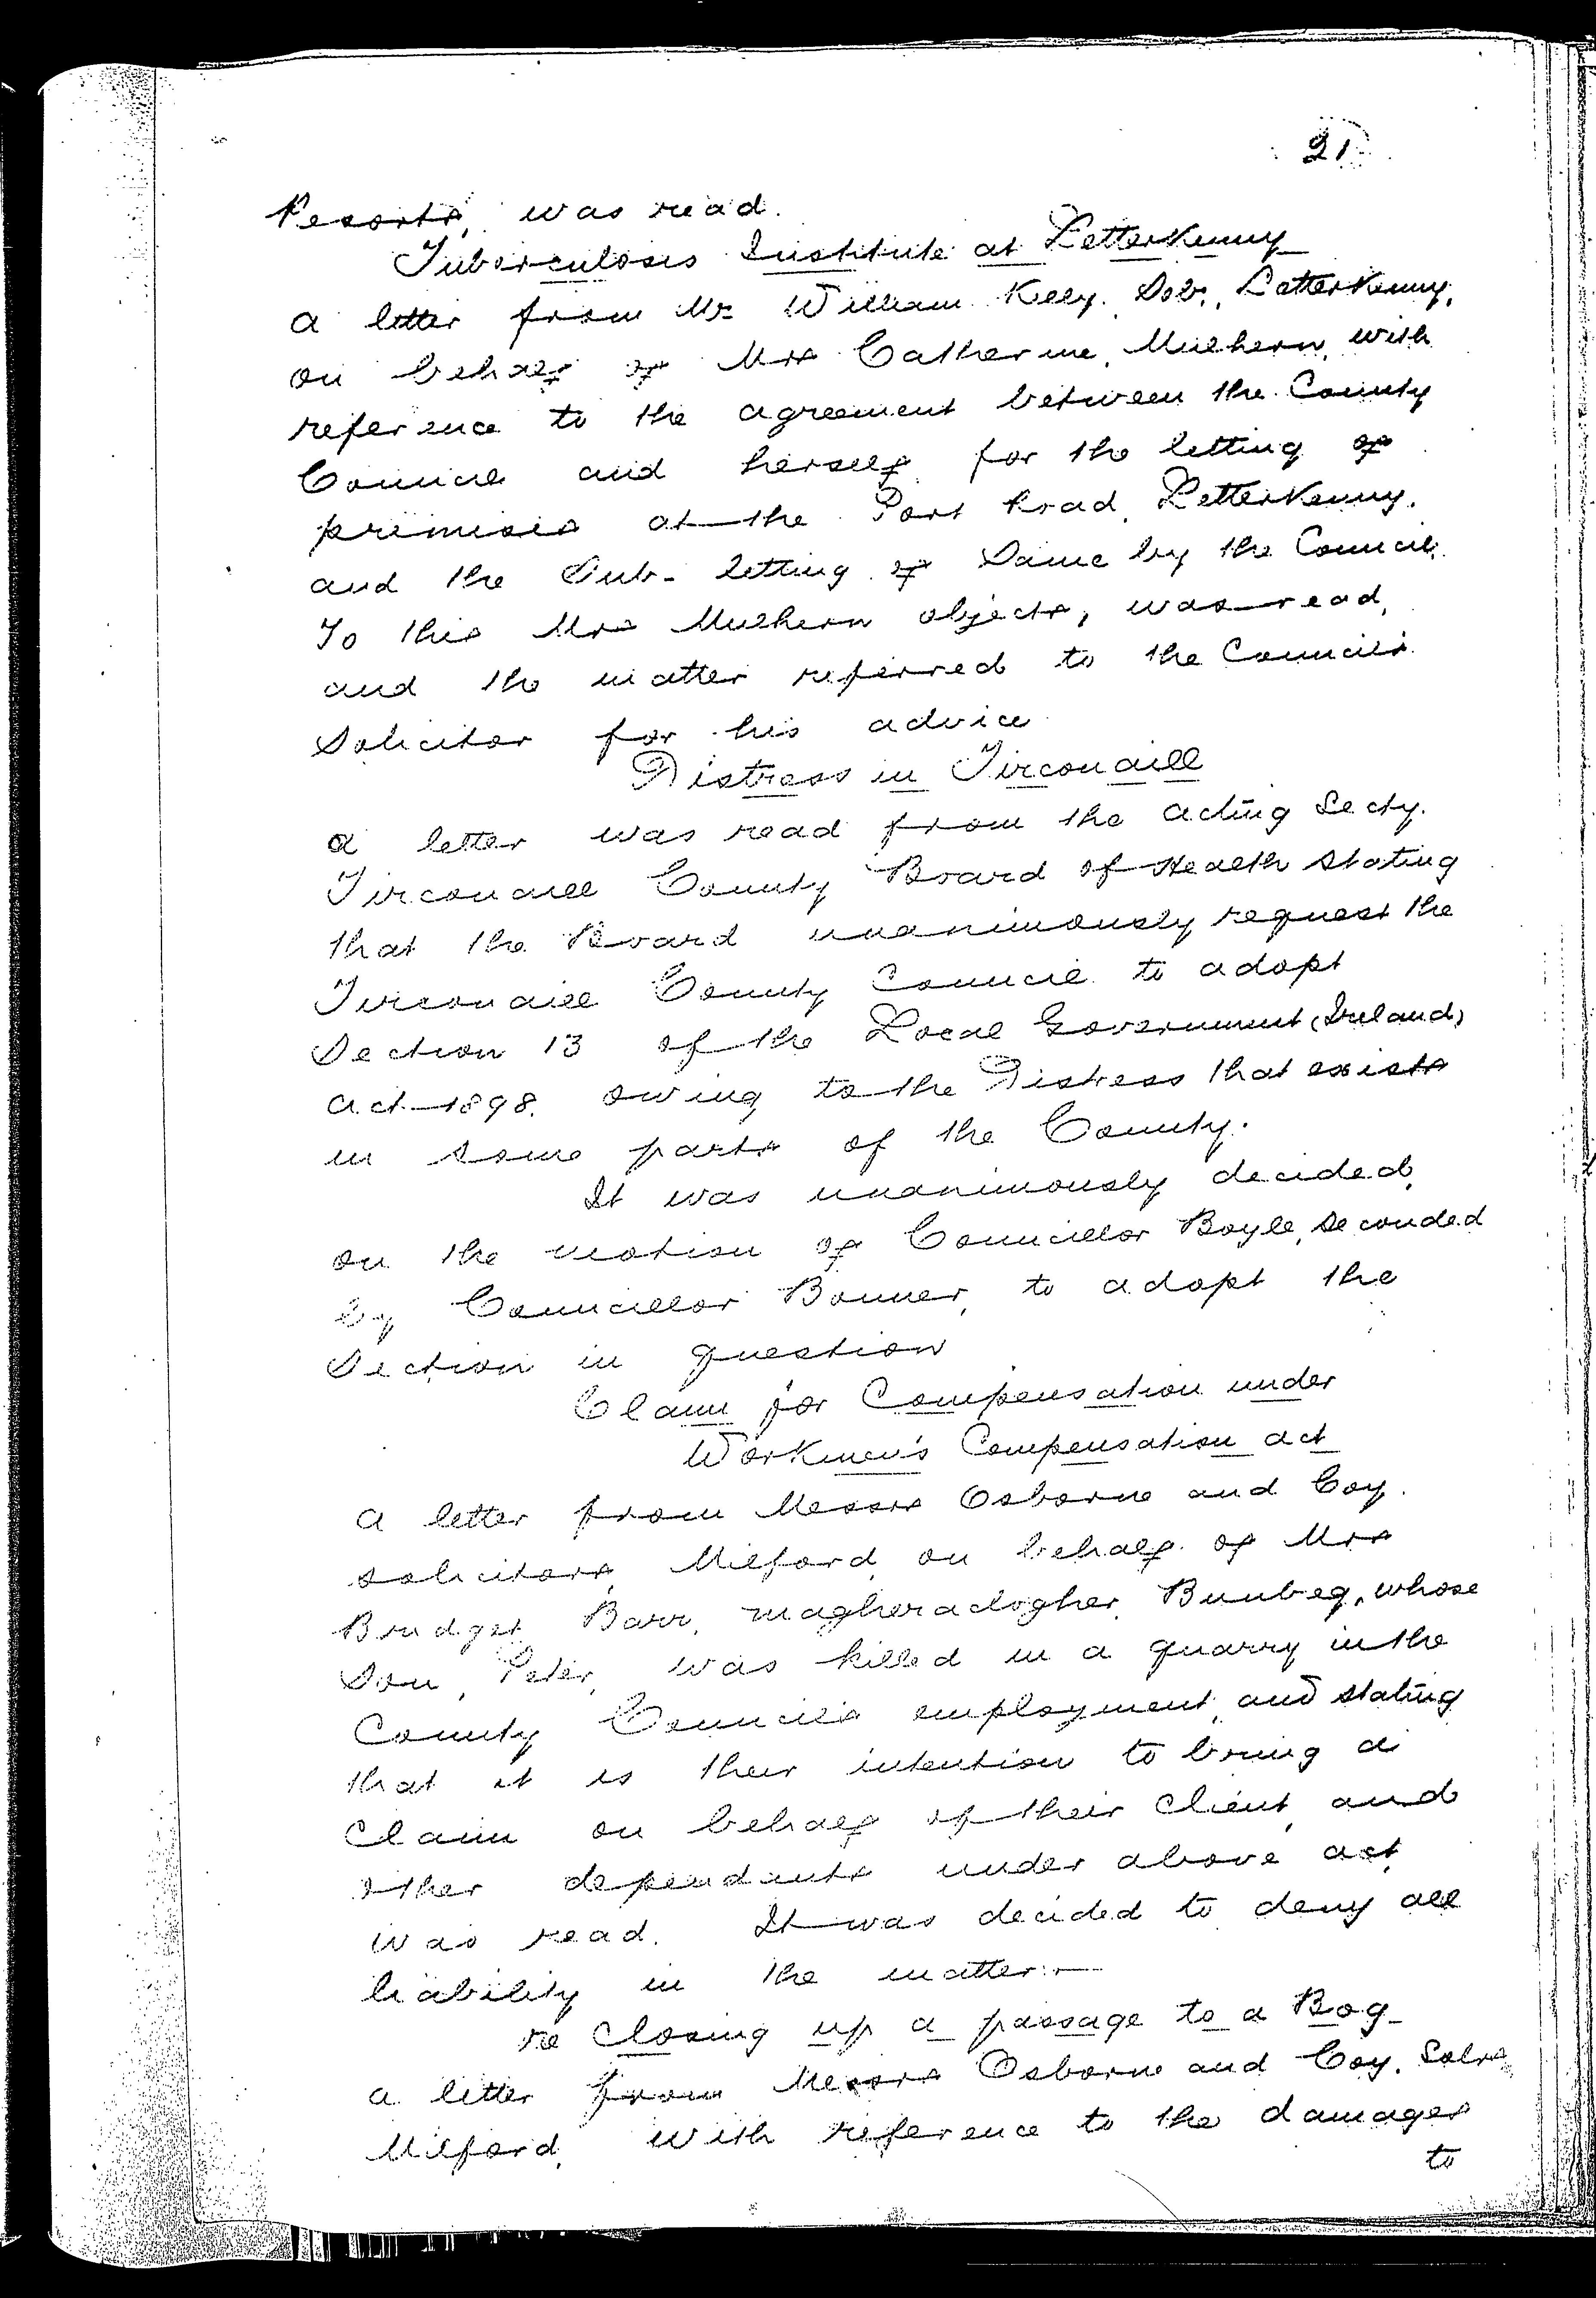 21
Resorts, was read.
Tuberculosis Institute at Letterkenny
a letter from Mr William Kelly. Solr., Letterkenny,
on behalf of Mrs Catherine, Mulhern, with
reference to the agreement between the County
Council and herself for the letting of
premises at the Port Road, Letterkenny.
and the Sub-letting of Same by the Council.
To this Mrs Mulhern objects, was read,
and the matter referred to the Councils
Solicitor for his advice
Distress in Tirconaill
a letter was read from the acting Secty.
Tirconaill County Board of Health stating
that the Board unanimously request the
Tirconaill County Council to adopt
Section 13 of the Local Government (Ireland)
act 1898. owing to the Distress that exists
in some parts of the County.
It was unanimously decided,
on the motion of Councillor Boyle, seconded
by Councillor Bonner, to adopt the
Section in question
Claim for Compensation under
Workmen's Compensation act
a letter from Messrs Osborne and Coy.
solicitors, Milford, on behalf of Mrs
Bridget Barr, magheraclogher, Bunbeg, whose
Son, Peter, was killed in a quarry in the
County Council's employment, and stating
that it is their intention to bring a
Claim on behalf of their client, and
other dependants under above act,
was read. It was decided to deny all
liability in the matter:-
re Closing up a passage to a Bog
a letter from Messrs Osborne and Coy. Solrs
Milford, with reference to the damages
to